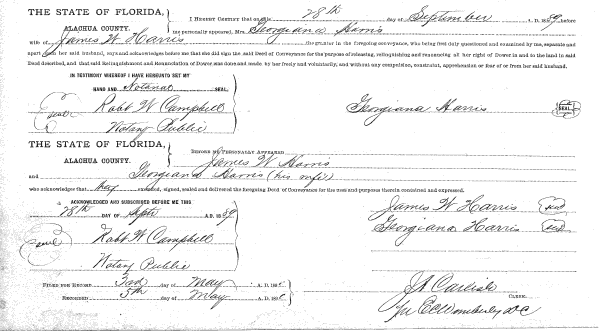 THE STATE OF FLORIDA,
ALACHUA COUNTY.
I HEREBY CERTIFY that on this 28th day of September A. D. 1889, before
me personally appeared Mrs. Georgiana Harris
wife of James W Harris the grantor in the foregoing conveyance, who being first duly questioned and examined by me, separate and
apart from her said husband, says and acknowledges before me that she did sign the said Deed of Conveyance for the purpose of releasing, relinquishing and renouncing all her right of Dower in and to the land in said
Deed described, and that said Relinquishment and Renunciation of Dower was done and made by her freely and voluntarily, and without any compulsion, constraint, apprehension or fear of or from her said husband.
IN TESTIMONY WHEREOF I HAVE HEREUNTO SET MY
HAND AND Notarial SEAL.
Seal Robt W. Campbell Georgiana Harris SEAL
Notary Public
THE STATE OF FLORIDA,
ALACHUA COUNTY.
BEFORE ME PERSONALLY APPEARED
James W Harris
and Georgiana Harris (his wife)
who acknowledges that they signed, sealed and delivered the foregoing Deed of Conveyance for the uses and purposes therein contained and expressed.
ACKNOWLEDGED AND SUBSCRIBED BEFORE ME THIS
28th DAY OF Septr A. D. 1889 James W Harris seal
Georgiana Harris seal
Seal Robt W. Campbell
Notary Public
FILED FOR RECORD day of May A. D. 189
RECORDED 5th day of May A. D. 189
J A Carlisle
CLERK.
E C Womberly D C